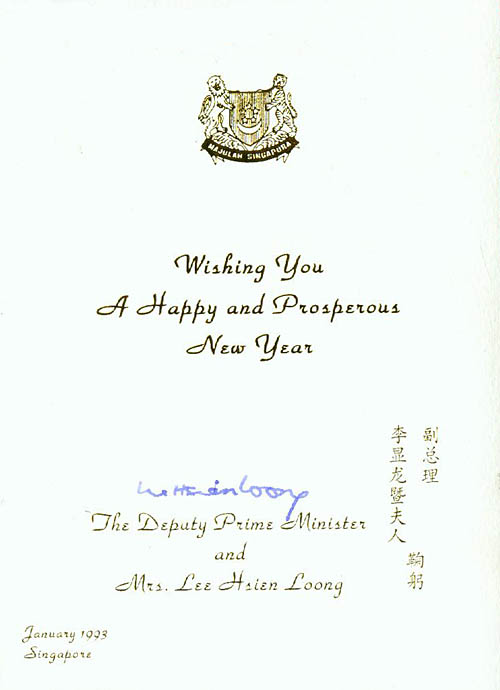 MAJULAH SINGAPURA
Wishing You
A Happy and Prosperous
New Year
Lee Hsien Loong
The Deputy Prime Minister
and
Mrs. Lee Hsien Loong
副总理
李显龙暨夫人
鞠躬
January 1993
Singapore